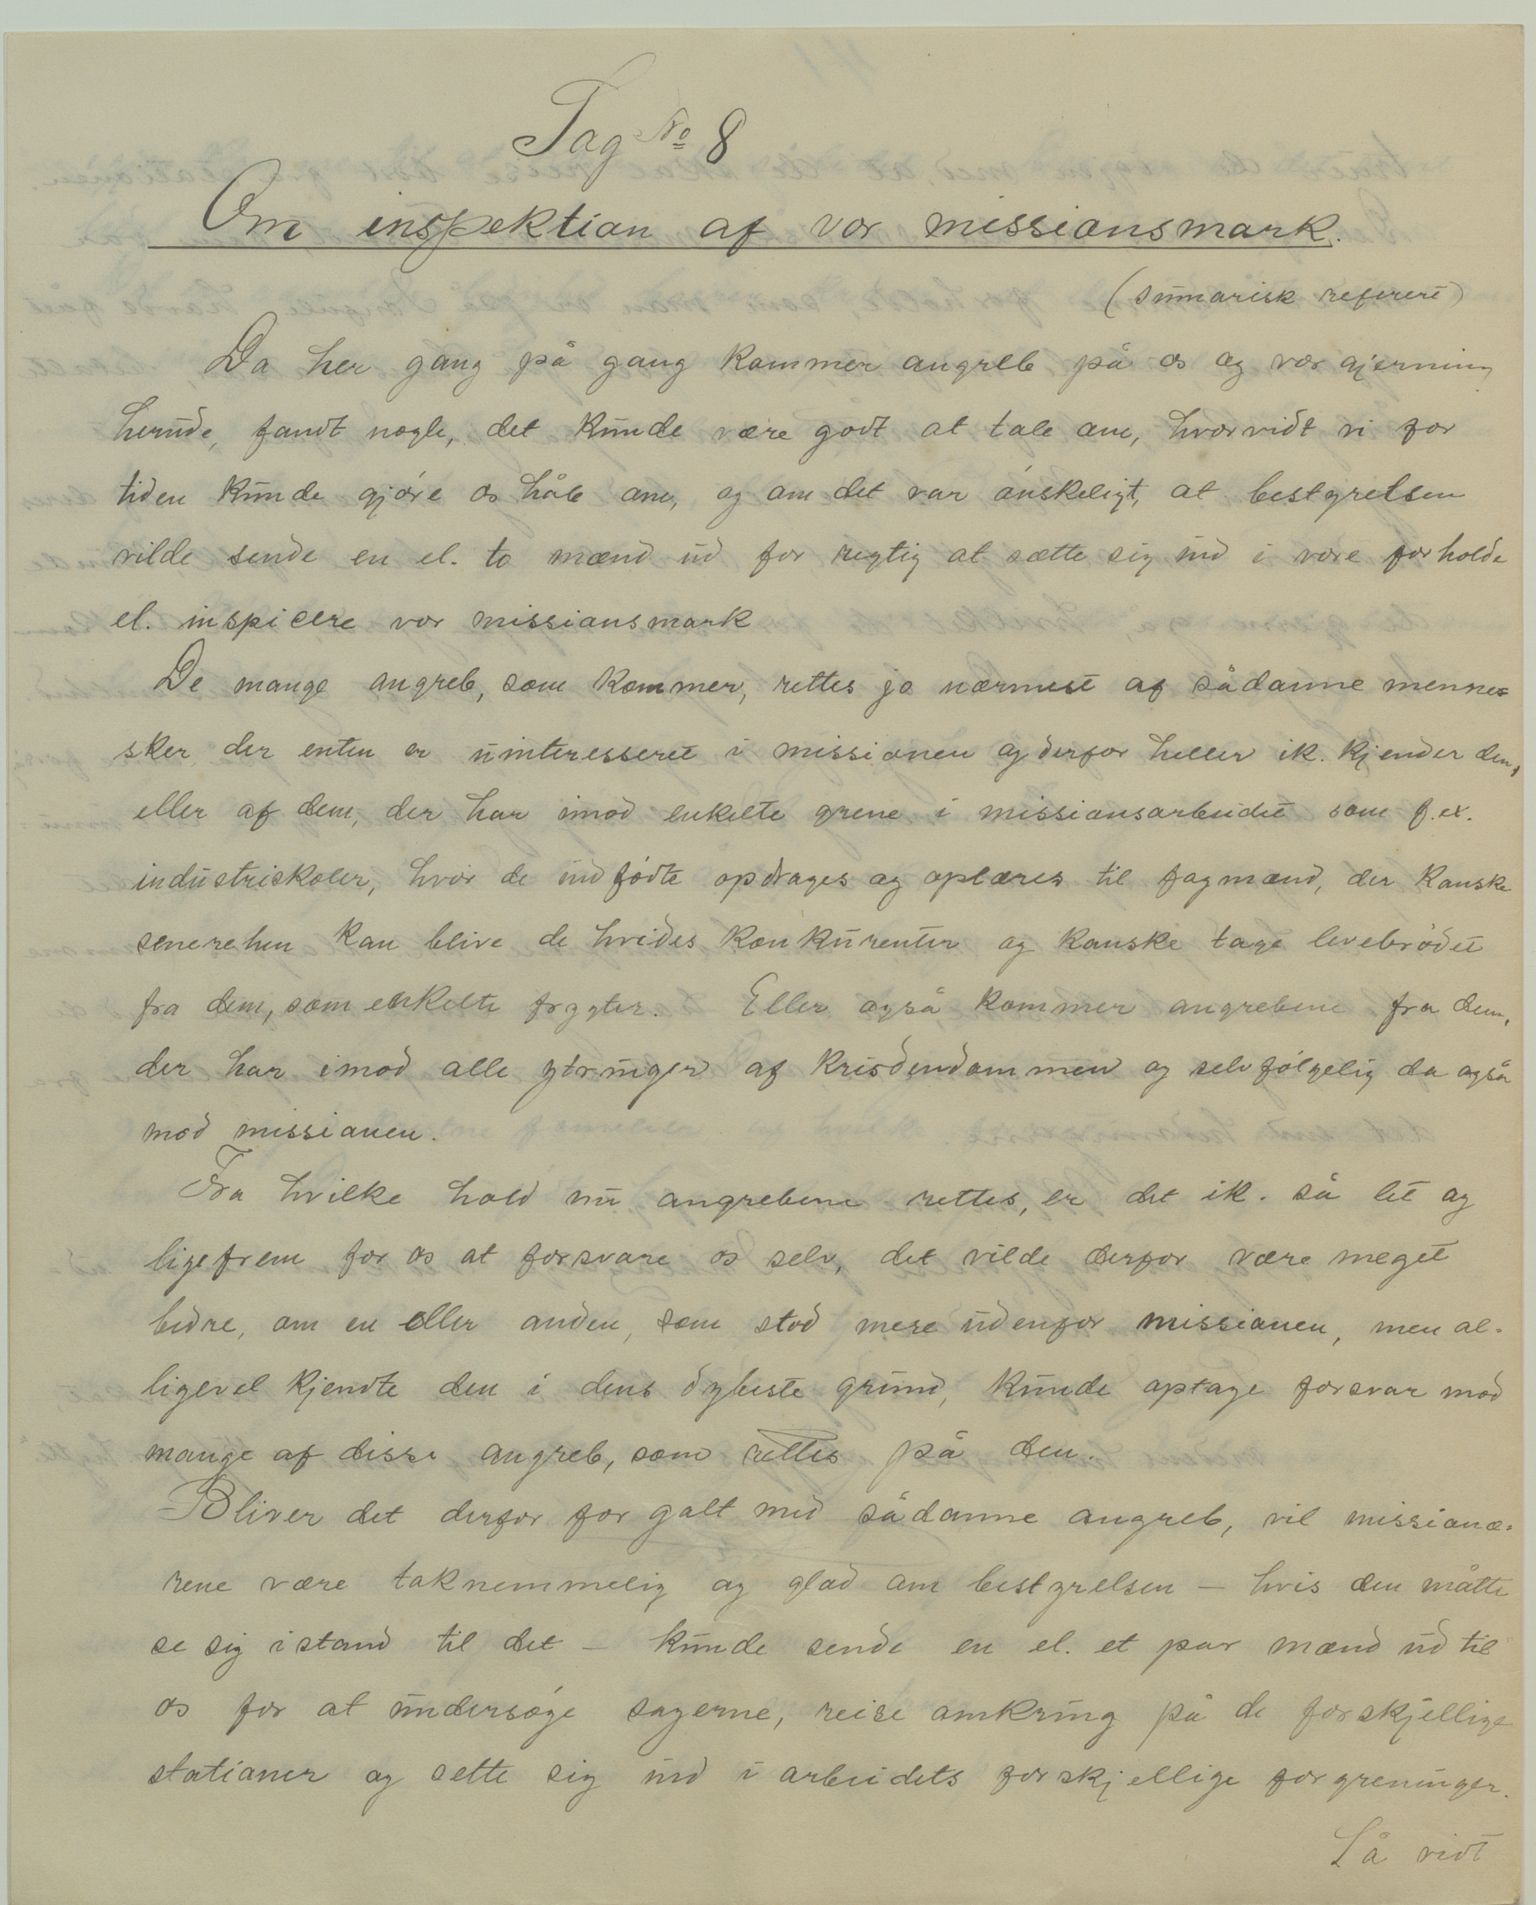 Sag No 8
Om inspektion af vor missionsmark.
(sumarisk referert)
Da her gang på gang kommer angreb på os og vor gjerning
herude, fandt nogle, det kunde være godt at tale om, hvorvidt vi for
tiden kunde gjøre os håb om, og om det var ønskeligt, at bestyrelsen
vilde sende en el. to mænd ud for regtig at sætte sig ind i vore forholde
el. inspicere vor missionsmark
De mange angreb, som kommer, rettes jo nærmest af sådanne mennes-
sker der enten er uinteresseret i missionen og derfor heller ik. kjender den,
eller af dem, der har imod enkelte grene i missionsarbeidet som f.ex.
industriskoler, hvor de indfødte opdrages og oplæres til fagmænd, der kanske
senerehen kan blive de hvides konkurenter og kanske tage levebrødet
fra dem, som enkelte frygter. Eller også kommer angrebene fra dem,
der har imod alle ytringer af kristendommen og selvfølgelig da også
mod missionen.
Fra hvilke hold nu angrebene rettes, er det ik. så let og
ligefrem for os at forsvare os selv, det vilde derfor være meget
bedre, om en eller anden, som stod mere udenfor missionen, men al-
ligevel kjendte den i dens dybeste grund, kunde optage forsvar mod
mange af disse angreb, som rettes på den.
Bliver det derfor for galt med sådanne angreb, vil missionæ-
rene være taknemmelig og glad om bestyrelsen - hvis den måtte
se sig istand til det - kunde sende en el. et par mænd ud til
os for at undersøge sagerne, reise omkring på de forskjellige
stationer og sette sig ind i arbeidets forskjellige forgreninger.
Så vidt